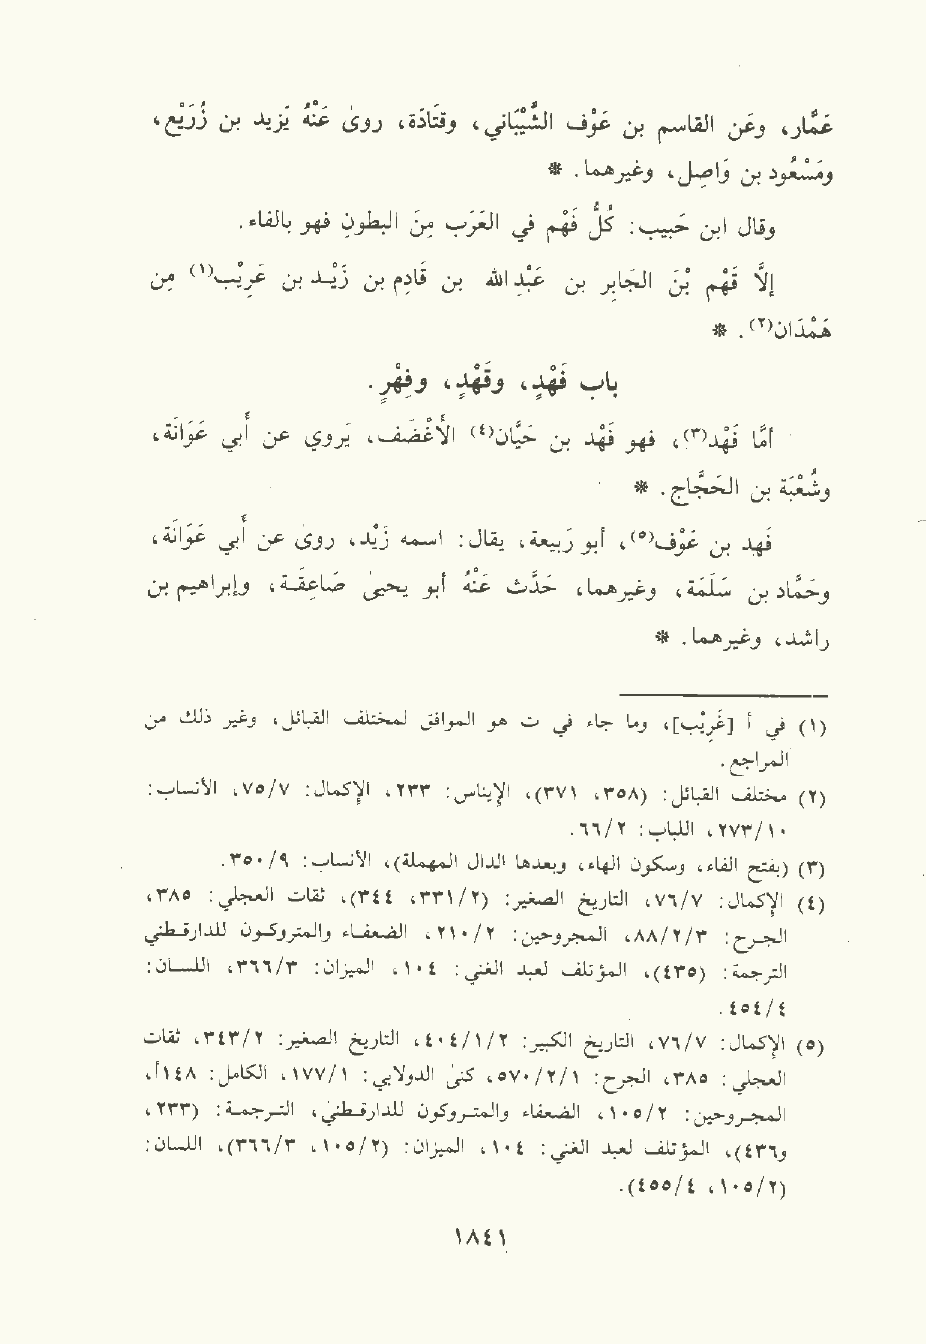 عَمَّار، وعَن القاسم بن عَوْف الشَّيْبَاني، وقتَادَة، روىٰ عَنْهُ يَزيد بن زُرَيْع،
ومَسْعُود بن وَاصِل، وغيرهما. *
وقال ابن حَبيب: كُلُّ فَهْم في العَرَب مِنَ البطونِ فهو بالفاء.
إلَّا قَهْم بْنَ الجَابِر بن عَبْدِ الله بن قَادِم بن زَيْد بن عَرِيْب(١) مِن
هَمْدَان(٢). *
باب فَهْدٍ، وقَهْدٍ، وفِهْرٍ.
أمَّا فَهْد(٣)، فهو فَهْد بن حَيَّان(٤) الأغْضَف، يَروي عن أبي عَوَانَة،
وشُعْبَة بن الحَجَّاج. *
فَهد بن عَوْف(٥)، أبو رَبيعة، يقال: اسمه زَيْد، روىٰ عن أبي عَوَانَة،
وحَمَّاد بن سَلَمَة، وغيرهما، حَدَّث عَنْهُ أبو يحيىٰ صَاعِقَة، وإبراهيم بن
راشد، وغيرهما. *
(١) في أ [غَرِيْب]، وما جاء في ت هو الموافق لمختلف القبائل، وغير ذلك من
المراجع.
(٢) مختلف القبائل: (٣٥٨، ٣٧١)، الإيناس: ٢٣٣، الإكمال: ٧٥/٧، الأنساب:
٢٧٣/١٠، اللباب: ٦٦/٢.
(٣) (بفتح الفاء، وسكون الهاء، وبعدها الدال المهملة)، الأنساب: ٣٥٠/٩.
(٤) الإكمال: ٧٦/٧، التاريخ الصغير: (٣٣١/٢، ٣٤٤)، ثقات العجلي: ٣٨٥،
الجرح: ٨٨/٢/٣، المجروحين: ٢١٠/٢، الضعفاء والمتروكون للدارقطني
الترجمة: (٤٣٥)، المؤتلف لعبد الغني: ١٠٤، الميزان: ٣٦٦/٣، اللسان:
٤٥٤/٤.
(٥) الإكمال: ٧٦/٧، التاريخ الكبير: ٤٠٤/١/٢، التاريخ الصغير: ٣٤٣/٢، ثقات
العجلي: ٣٨٥، الجرح: ٥٧٠/٢/١، كنىٰ الدولابي: ١٧٧/١، الكامل: ١٤٨أ،
المجروحين: ١٠٥/٢، الضعفاء والمتروكون للدارقطني، الترجمة: (٢٣٣،
و٤٣٦)، المؤتلف لعبد الغني: ١٠٤، الميزان: (١٠٥/٢، ٣٦٦/٣)، اللسان:
(١٠٥/٢، ٤٥٥/٤).
١٨٤١